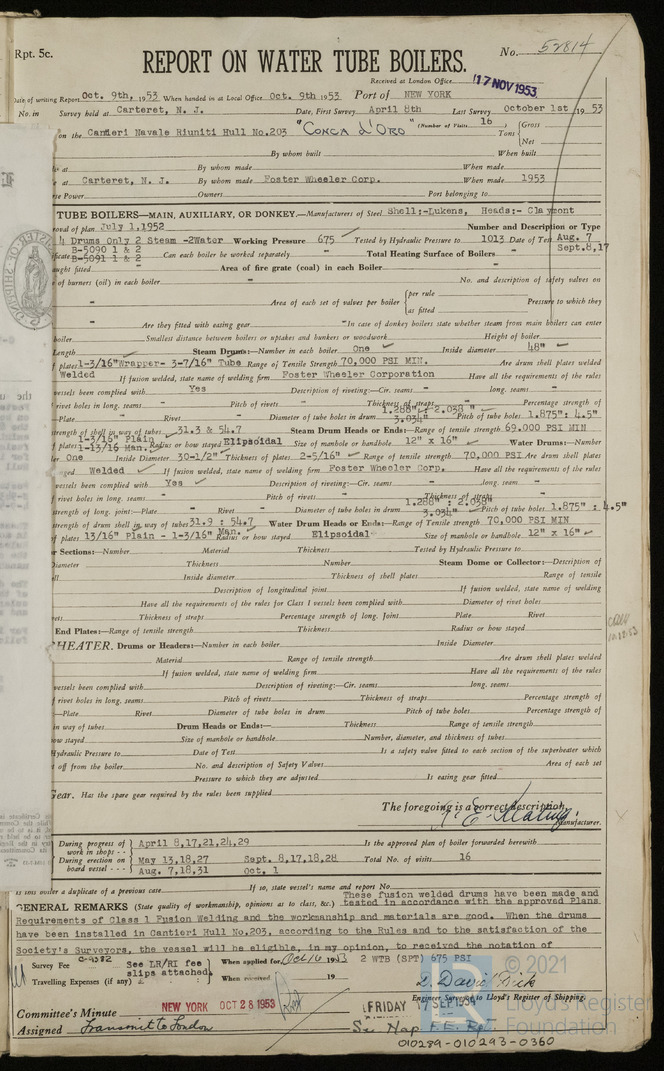 Rpt. 5c.
REPORT ON WATER TUBE BOILERS.
No. 52814
Received at London Office 17 NOV 1953
Date of writing Report Oct. 9th, 1953 When handed in at Local Office Oct. 9th 1953 Port of NEW YORK
No. in Survey held at Carteret, N. J. Date, First Survey April 8th Last Survey October 1st 1953
on the Cantieri Navale Riuniti Hull No.203 "CONCA d'ORO" (Number of Visits 16 ) Tons { Gross
Net
By whom built When built
at By whom made When made
at Carteret, N. J. By whom made Foster Wheeler Corp. When made 1953
Power Owners Port belonging to
TUBE BOILERS—MAIN, AUXILIARY, OR DONKEY.—Manufacturers of Steel Shell:-Lukens, Heads:- Claymont
oval of plan July 1,1952 Number and Description or Type
4 Drums Only 2 Steam -2Water Working Pressure 675 Tested by Hydraulic Pressure to 1013 Date of Test Aug. 7
Sept.8,17
B-5090 1 & 2
B-5091 1 & 2 Can each boiler be worked separately - Total Heating Surface of Boilers -
aught fitted Area of fire grate (coal) in each Boiler
of burners (oil) in each boiler No. and description of safety valves on
- Area of each set of valves per boiler { per rule
as fitted - Pressure to which they
- Are they fitted with easing gear - In case of donkey boilers state whether steam from main boilers can enter
boiler Smallest distance between boilers or uptakes and bunkers or woodwork Height of boiler
Length Steam Drums:—Number in each boiler One Inside diameter 48"
plates 1-3/16"Wrapper- 3-7/16" Tube Range of Tensile Strength 70,000 PSI MIN. Are drum shell plates welded
Welded If fusion welded, state name of welding firm Foster Wheeler Corporation Have all the requirements of the rules
vessels been complied with Yes Description of riveting:—Cir. seams - long. seams -
rivet holes in long. seams - Pitch of rivets - Thickness of straps Percentage strength of
1.288" : 2.038"
—Plate - Rivet - Diameter of tube holes in drum 3.034" Pitch of tube holes 1.875": 4.5"
strength of shell in way of tubes 31.3 & 54.7 Steam Drum Heads or Ends:—Range of tensile strength 69.000 PSI MIN
1-3/16" Plain
plates 1-13/16 Man. Radius or how stayed Ellipsoidal Size of manhole or handhole 12" x 16" Water Drums:—Number
One Inside Diameter 30-1/2" Thickness of plates 2-5/16" Range of tensile strength 70,000 PSI Are drum shell plates
Welded If fusion welded, state name of welding firm Foster Wheeler Corp. Have all the requirements of the rules
vessels been complied with Yes Description of riveting:—Cir. seams - long. seams -
rivet holes in long. seams - Pitch of rivets - Thickness of straps
1.288" : 2.038"
strength of long. joint:—Plate - Rivet - Diameter of tube holes in drum 3.034" Pitch of tube holes 1.875" : 4.5"
strength of drum shell in way of tubes 31.9 : 54.7 Water Drum Heads or Ends:—Range of Tensile strength 70,000 PSI MIN
plates 13/16" Plain - 1-3/16" Man. Radius or how stayed Ellipsoidal Size of manhole or handhole 12" x 16"
or Sections:—Number Material Thickness Tested by Hydraulic Pressure to
Diameter Thickness Number Steam Dome or Collector:—Description of
Inside diameter Thickness of shell plates Range of tensile
Description of longitudinal joint If fusion welded, state name of welding
Have all the requirements of the rules for Class I vessels been complied with Diameter of rivet holes
Thickness of straps Percentage strength of long. Joint Plate Rivet
End Plates:—Range of tensile strength Thickness Radius or how stayed
HEATER. Drums or Headers:—Number in each boiler Inside Diameter
Material Range of tensile strength Are drum shell plates welded
If fusion welded, state name of welding firm Have all the requirements of the rules
vessels been complied with Description of riveting:—Cir. seams long. seams
rivet holes in long. seams Pitch of rivets Thickness of straps Percentage strength of
—Plate Rivet Diameter of tube holes in drum Pitch of tube holes Percentage strength of
in way of tubes Drum Heads or Ends:— Thickness Range of tensile strength
how stayed Size of manhole or handhole Number, diameter, and thickness of tubes
Hydraulic Pressure to Date of Test Is a safety valve fitted to each section of the superheater which
off from the boiler No. and description of Safety Valves Area of each set
Pressure to which they are adjusted Is easing gear fitted
Gear. Has the spare gear required by the rules been supplied
The foregoing is a correct description,
Manufacturer.
During progress of work in shops - - April 8,17,21,24,29 Is the approved plan of boiler forwarded herewith
During erection on board vessel - - May 13,18,27 Sept. 8,17,18,28 Total No. of visits 16
Aug. 7,18,31 Oct. 1
Is this boiler a duplicate of a previous case If so, state vessel's name and report No.
GENERAL REMARKS (State quality of workmanship, opinions as to class, &c.) These fusion welded drums have been made and
tested in accordance with the approved Plans
Requirements of Class 1 Fusion Welding and the workmanship and materials are good. When the drums
have been installed in Cantieri Hull No.203, according to the Rules and to the satisfaction of the
Society's Surveyors, the vessel will be eligible, in my opinion, to received the notation of
Survey Fee C-4382 See LR/RI fee When applied for Oct 16 1953 2 WTB (SPT) 675 PSI
slips attached
Travelling Expenses (if any) £ When received 19
Engineer Surveyor to Lloyd's Register of Shipping.
Committee's Minute NEW YORK OCT 28 1953 FRIDAY 17 SEP 1954
Assigned Transmit to London See Nap. F.E. Rpt
010289-010293-0360
© 2021
Lloyd's Register
Foundation